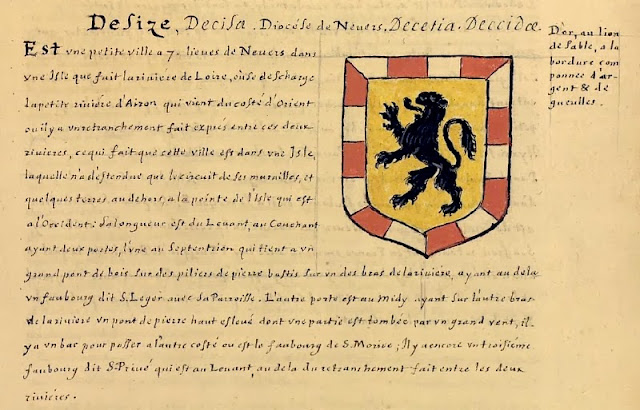 Desize, Decisa. Diocése de Nevers, Decetia. Deccidæ
Est vne petite ville a 7. lieues de Nevers dans
vne Isle que fait la riviere de Loire, où se descharge
la petite riviére d'Airon qui vient du costé d'Orient
ou il y a vn retranchement fait expres entre ces deux
rivieres, ce qui fait que cette ville est dans vne Isle,
laquelle n'a d'estendue que le circuit de ses murailles, et
quelques terres au dehors, a la pointe de l'Isle qui est
a l'Occident: sa longueur est du Levant, au Couchant
ayant deux portes, l'vne au Septentrion qui tient a vn
grand pont de bois sur des piliers de pierre bastis sur vn des bras de la riviere, ayant au dela
vn faubourg dit S. Leger avec sa Parroisse. L'autre porte est au Midy ayant sur l'autre bras
de la riviere vn pont de pierre haut esleué dont vne partie est tombée par vn grand vent, il
y a vn bac pour passer a l'autre costé ou est le faubourg de S. Morice; Il y a encore vn troisieme
faubourg dit S. Privé qui est au Levant, au dela du retranchement fait entre les deux
riviéres.
D'or, au lion
de sable, a la
bordure com
ponnée d'ar
gent & de
gueulles.